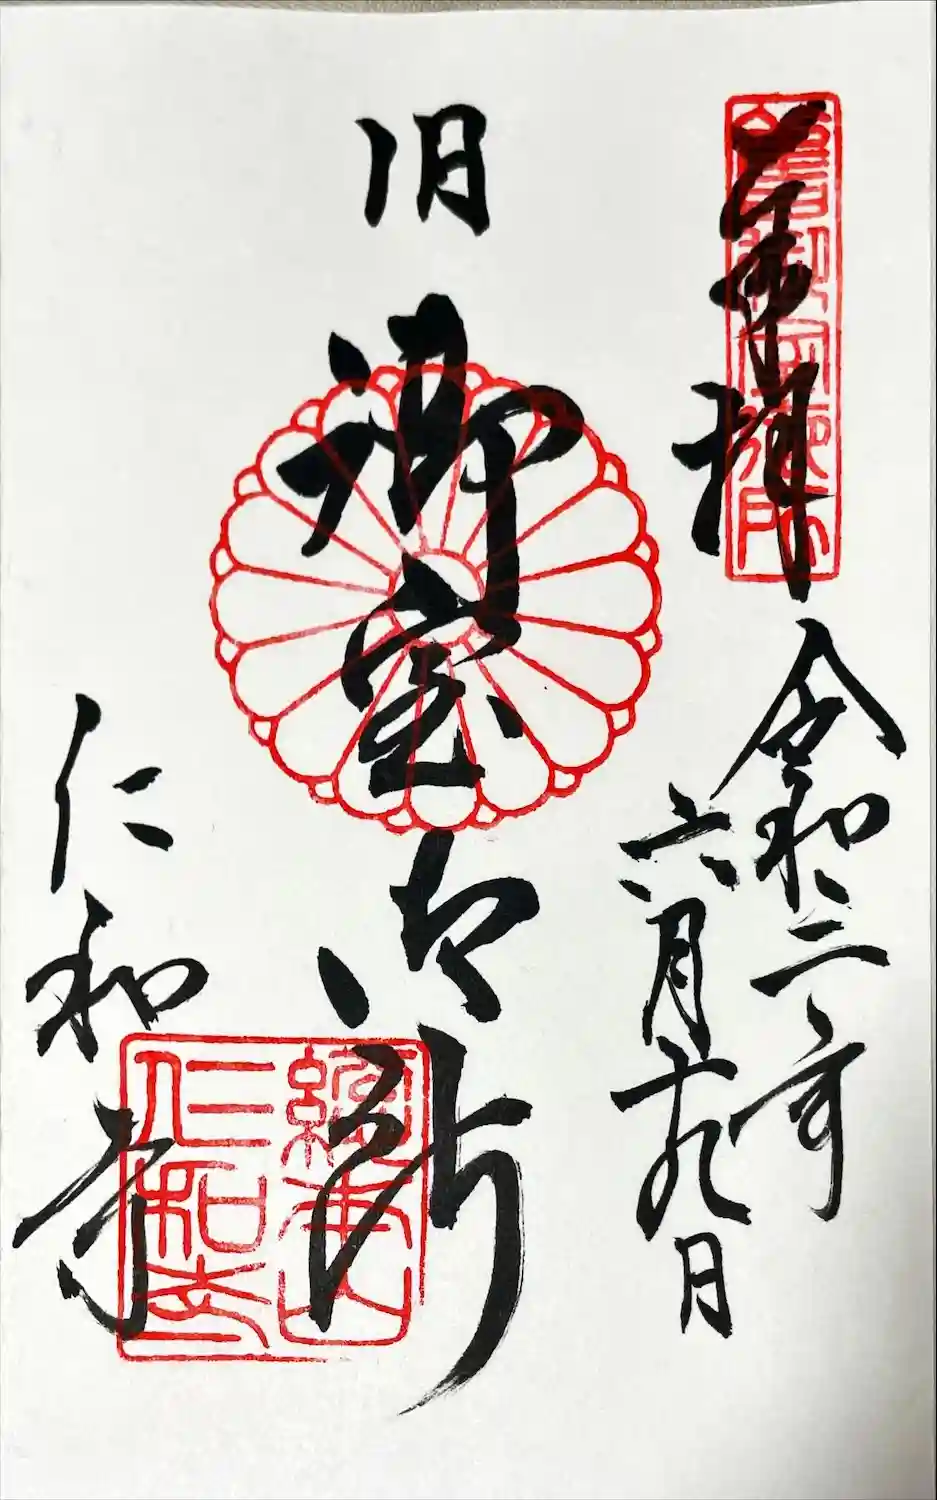 奉拝
舊御室御所
令和三年
六月十九日
旧御室御所
仁和寺
總本山
仁和寺